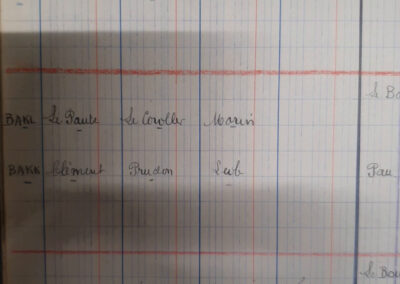 Le Bo
BAKL Le Paule Le Coroller Morin
BAKK Clément Prudon Leib Pau
Le Bou